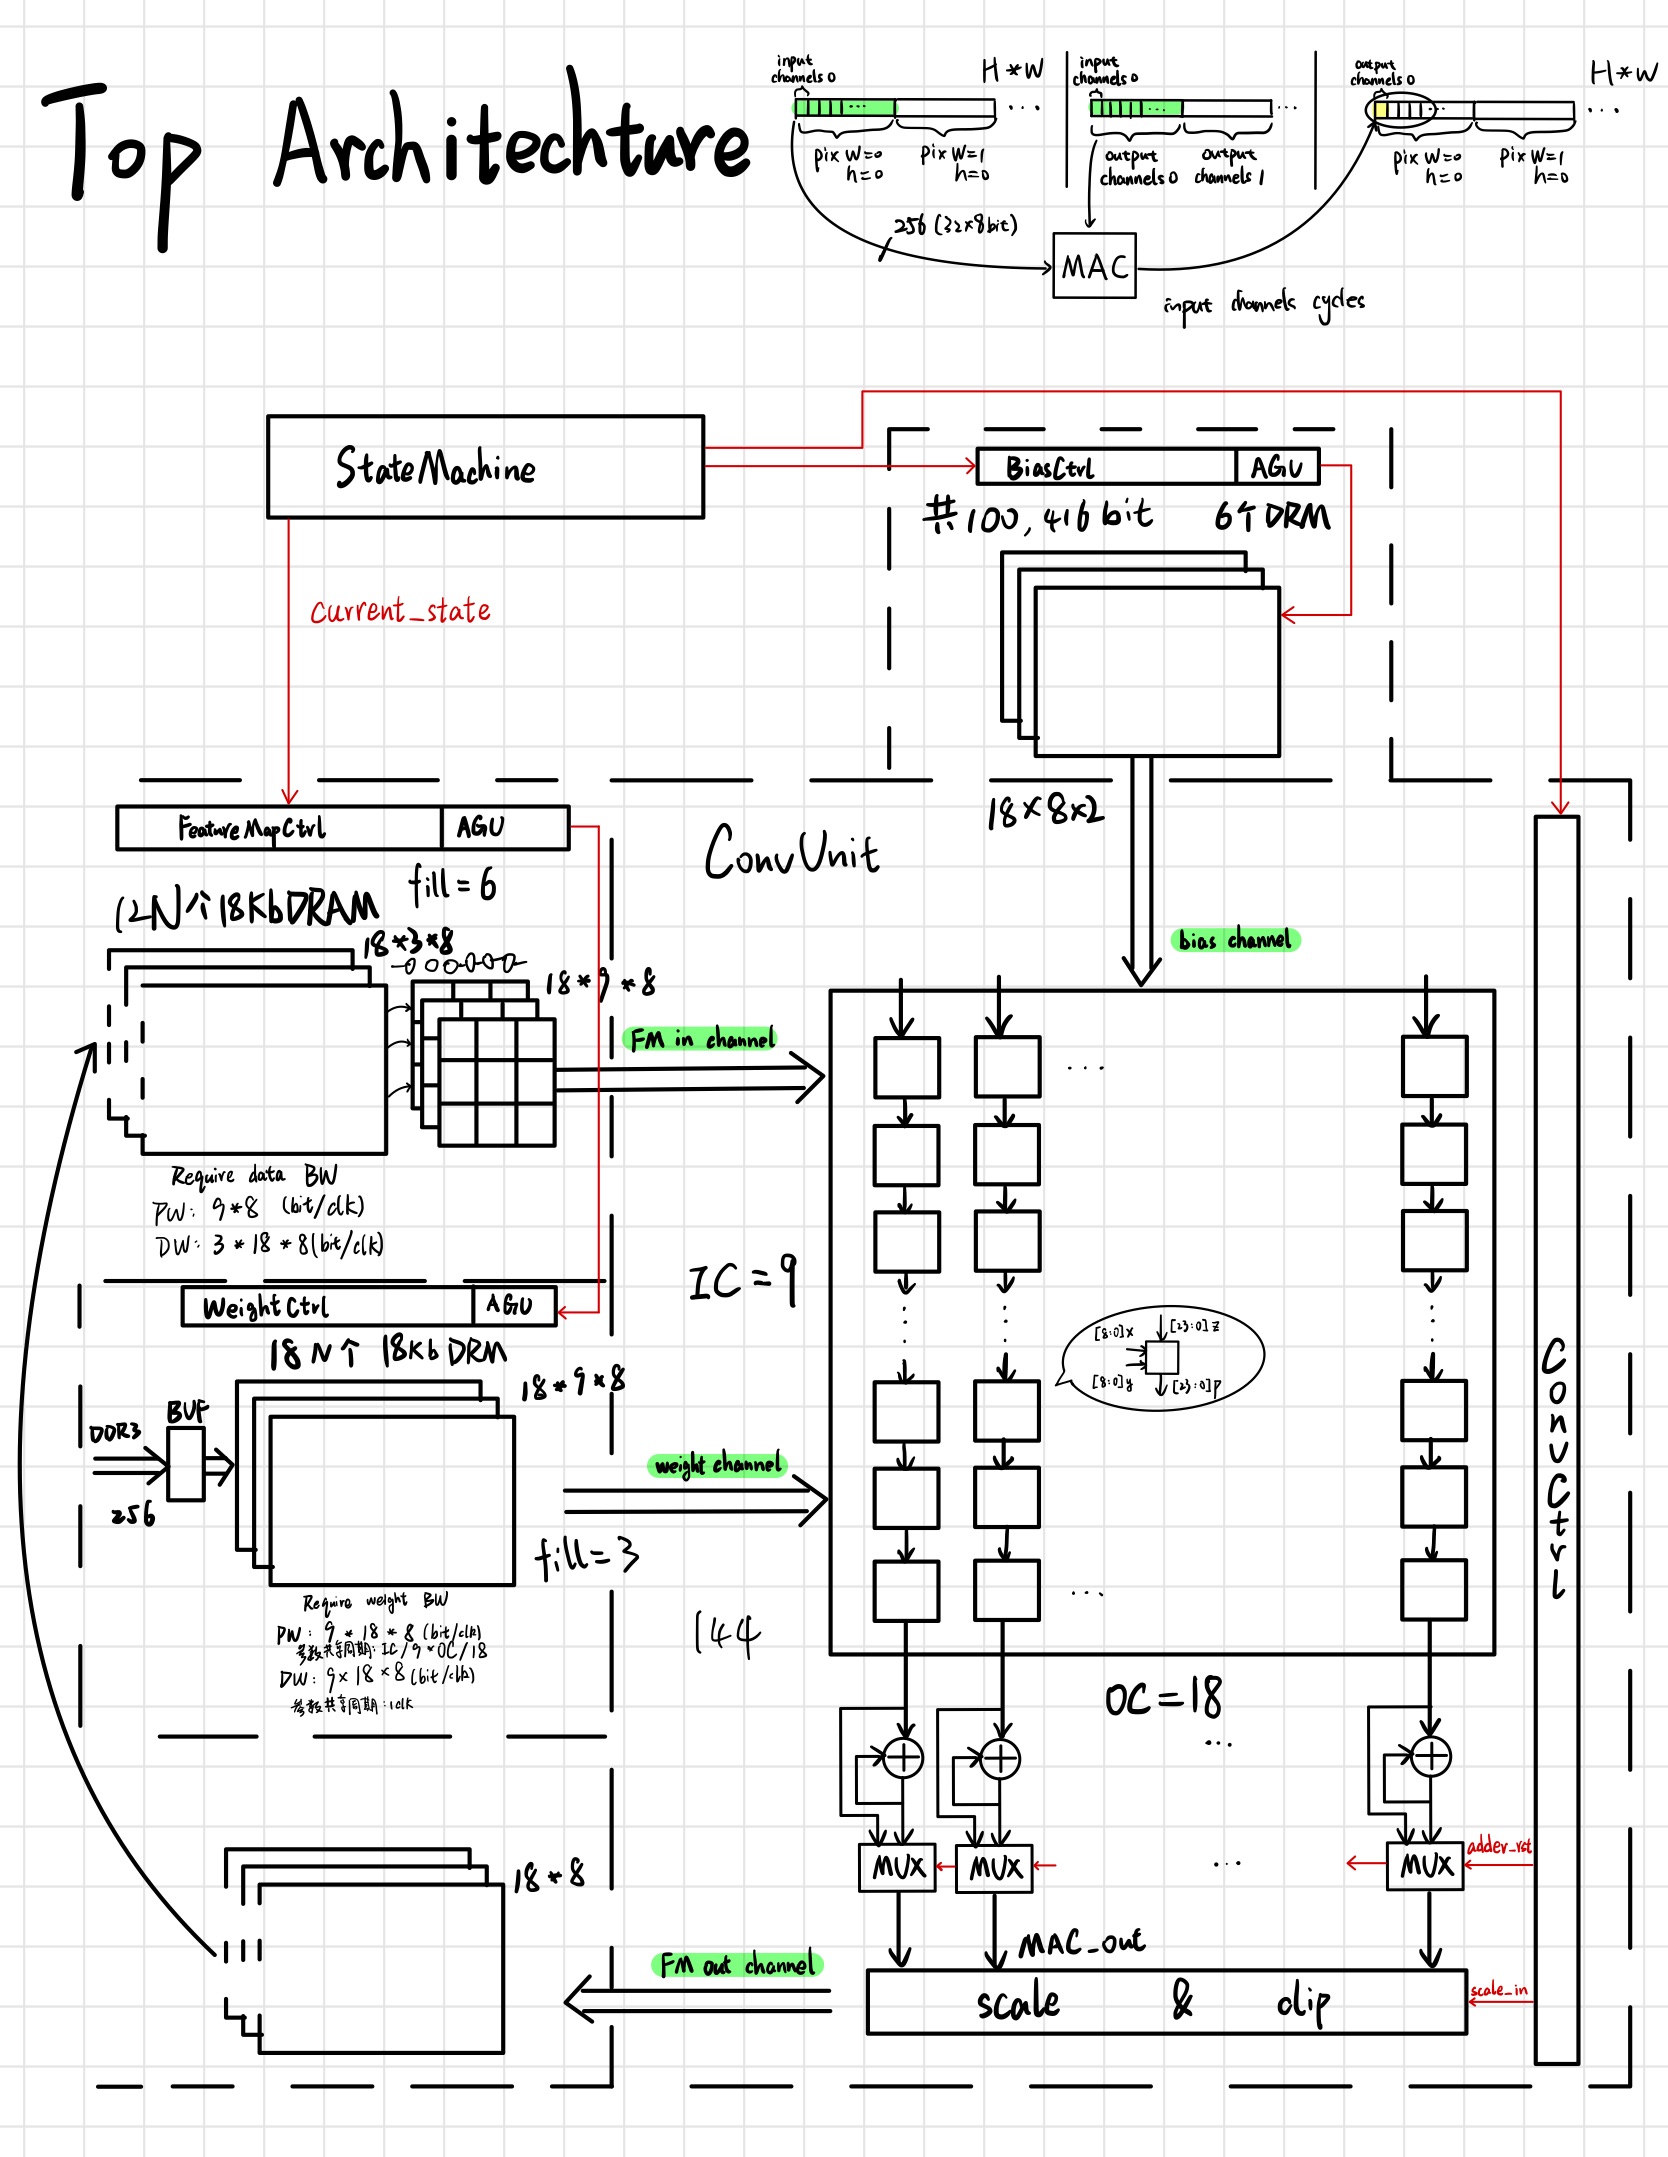 Top Architechture
input
channels 0
H*W
...
pix W=0
h=0
pix W=1
h=0
input
channels 0
...
output
channels 0
output
channels 1
output
channels 0
H*W
...
pix W=0
h=0
pix W=1
h=0
256 (32×8bit)
MAC
input channels cycles
StateMachine
BiasCtrl
AGU
共100,416 bit
6个DRM
current_state
18×8×2
FeatureMapCtrl
AGU
ConvUnit
fill=6
12N个18KbDRAM
18*3*8
18*9*8
bias channel
FM in channel
...
Require data BW
PW: 9*8 (bit/clk)
DW: 3*18*8(bit/clk)
IC=9
WeightCtrl
AGU
18N个 18Kb DRM
[8:0]x
[23:0]z
[8:0]y
[23:0]p
18*9*8
DDR3
BUF
256
weight channel
ConvCtrl
fill=3
...
Require weight BW
PW: 9*18*8 (bit/clk)
参数共享周期: IC/9*OC/18
DW: 9×18×8(bit/clk)
参数共享周期: 1clk
144
OC=18
...
MUX
MUX
...
MUX
adder_rst
18*8
MAC_out
FM out channel
scale & clip
scale_in